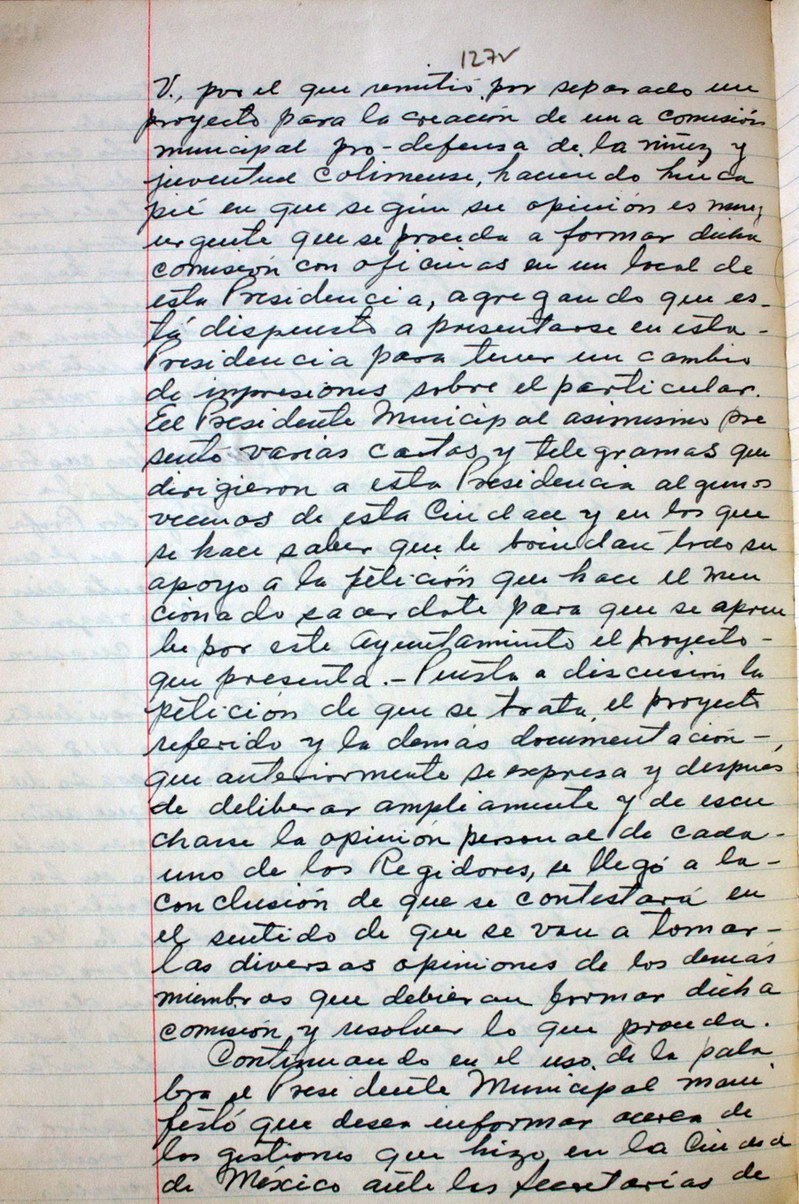 127v
V., por el que remitió por separado un
proyecto para la creación de una comisión
municipal pro-defensa de la niñez y
juventud Colimense, haciendo hinca
pié en que según su opinión es muy
urgente que se proceda a formar dicha
comisión con oficinas en un local de
esta Presidencia, agregando que es-
tá dispuesto a presentarse en esta-
Presidencia para tener un cambio
de impresiones sobre el particular.
El Presidente Municipal asimismo pre
sentó varias cartas y telegramas que
dirigieron a esta Presidencia algunos
vecinos de esta Ciudad y en los que
se hace saber que le brindan todo su
apoyo a la petición que hace el men
cionado sacerdote para que se aprue
be por este Ayuntamiento el proyecto-
que presenta.- Puesta a discusión la
petición de que se trata, el proyecto
referido y la demás documentación-,
que anteriormente se expresa y después
de deliberar ampliamente y de escu
charse la opinión personal de cada-
uno de los Regidores, se llegó a la-
conclusión de que se contestará en
el sentido de que se van a tomar-
las diversas opiniones de los demás
miembros que debieran formar dicha
comisión y resolver lo que proceda.
Continuando en el uso de la pala
bra el Presidente Municipal mani
festó que desea informar acerca de
las gestiones que hizo en la Ciudad
de México ante las Secretarías de